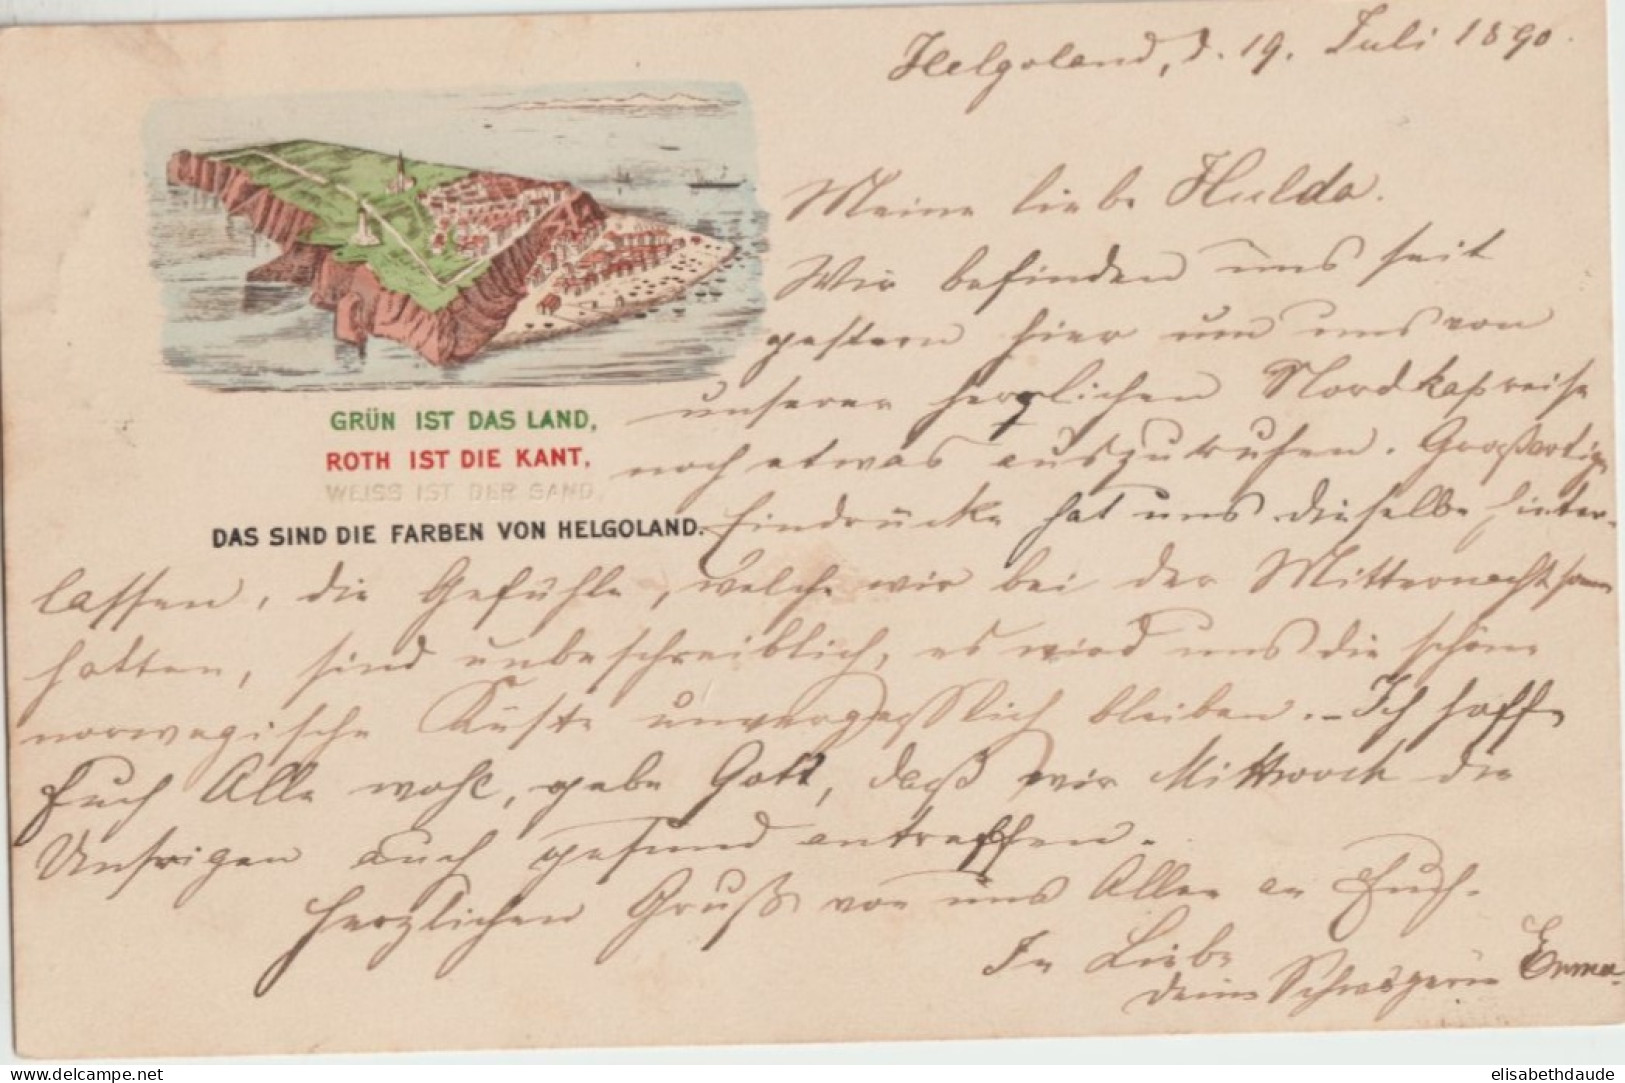 Helgoland, d. 19. Juli 1890.
Meine liebe Hulda.
Wir befinden uns seit
gestern hier um uns von
unserer herrlichen Nordkapreise
noch etwas auszuruhen. Großartige
Eindrücke hat uns dieselbe hinter-
GRÜN IST DAS LAND,
ROTH IST DIE KANT,
WEISS IST DER SAND,
DAS SIND DIE FARBEN VON HELGOLAND.
lassen, die Gefühle, welche wir bei der Mitternachtsonne
hatten, sind unbeschreiblich, es wird uns die schöne
norwegische Küste unvergesslich bleiben. - Ich hoffe
Euch Alle wohl, gebe Gott, daß wir Mittwoch die
Unsrigen auch gesund antreffen.
Herzlichen Gruß von uns Allen an Euch.
In Liebe
Deine Schwägerin Emma.
www.delcampe.net
elisabethdaude